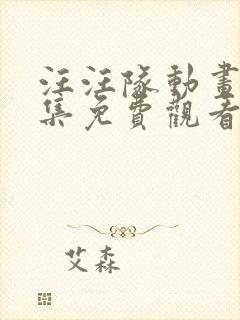 汪汪隊動畫
集免費觀看
艾森